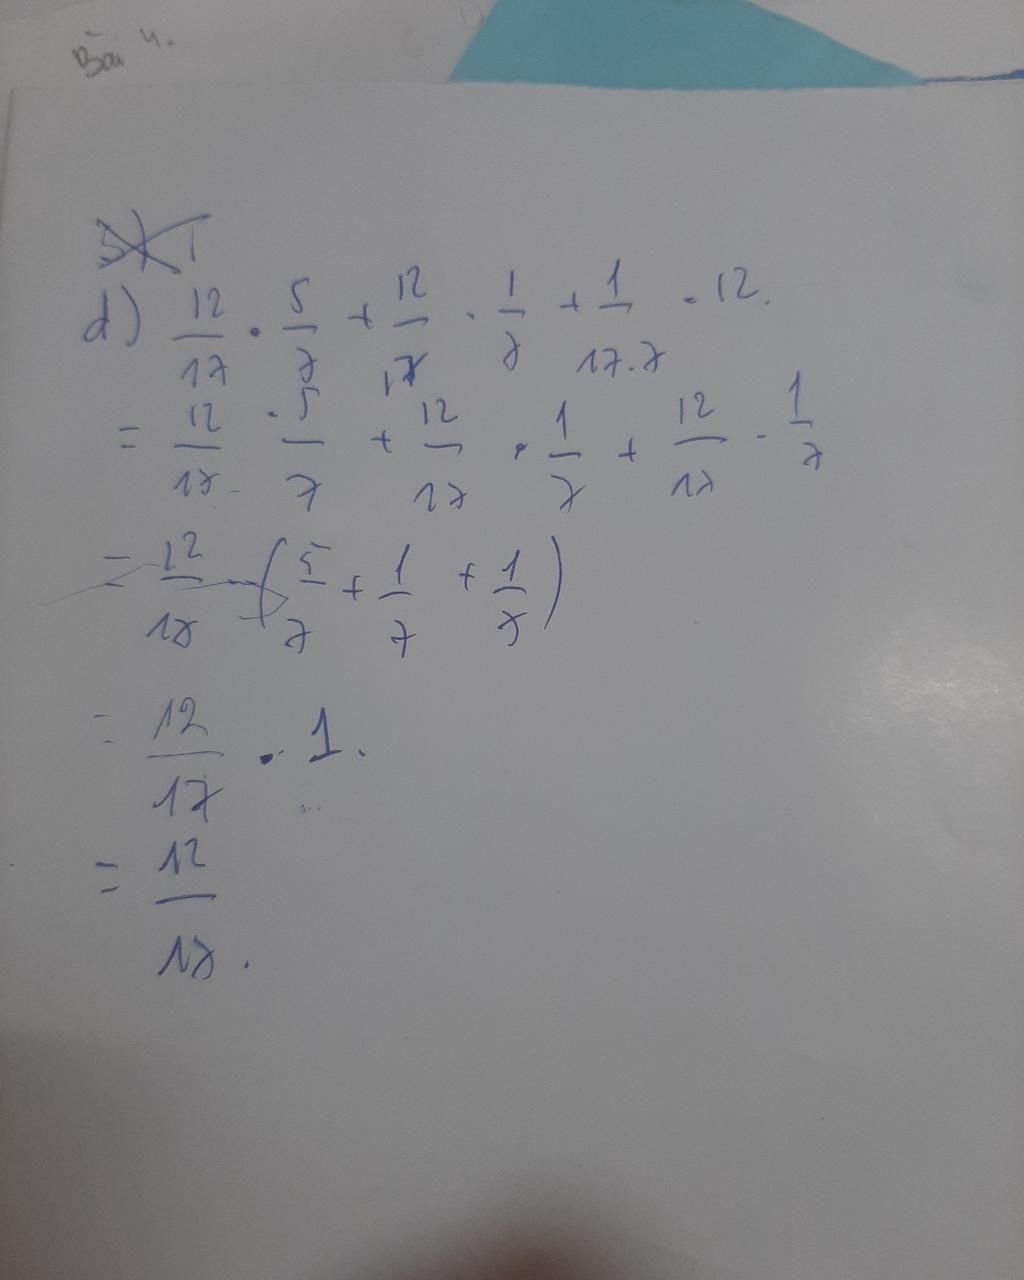 Bài 4.
d) 12/17 . 5/7 + 12/17 . 1/7 + 1/17.7 . 12.
= 12/17 . 5/7 + 12/17 . 1/7 + 12/17 . 1/7
= 12/17 (5/7 + 1/7 + 1/7)
= 12/17 . 1.
= 12/17.